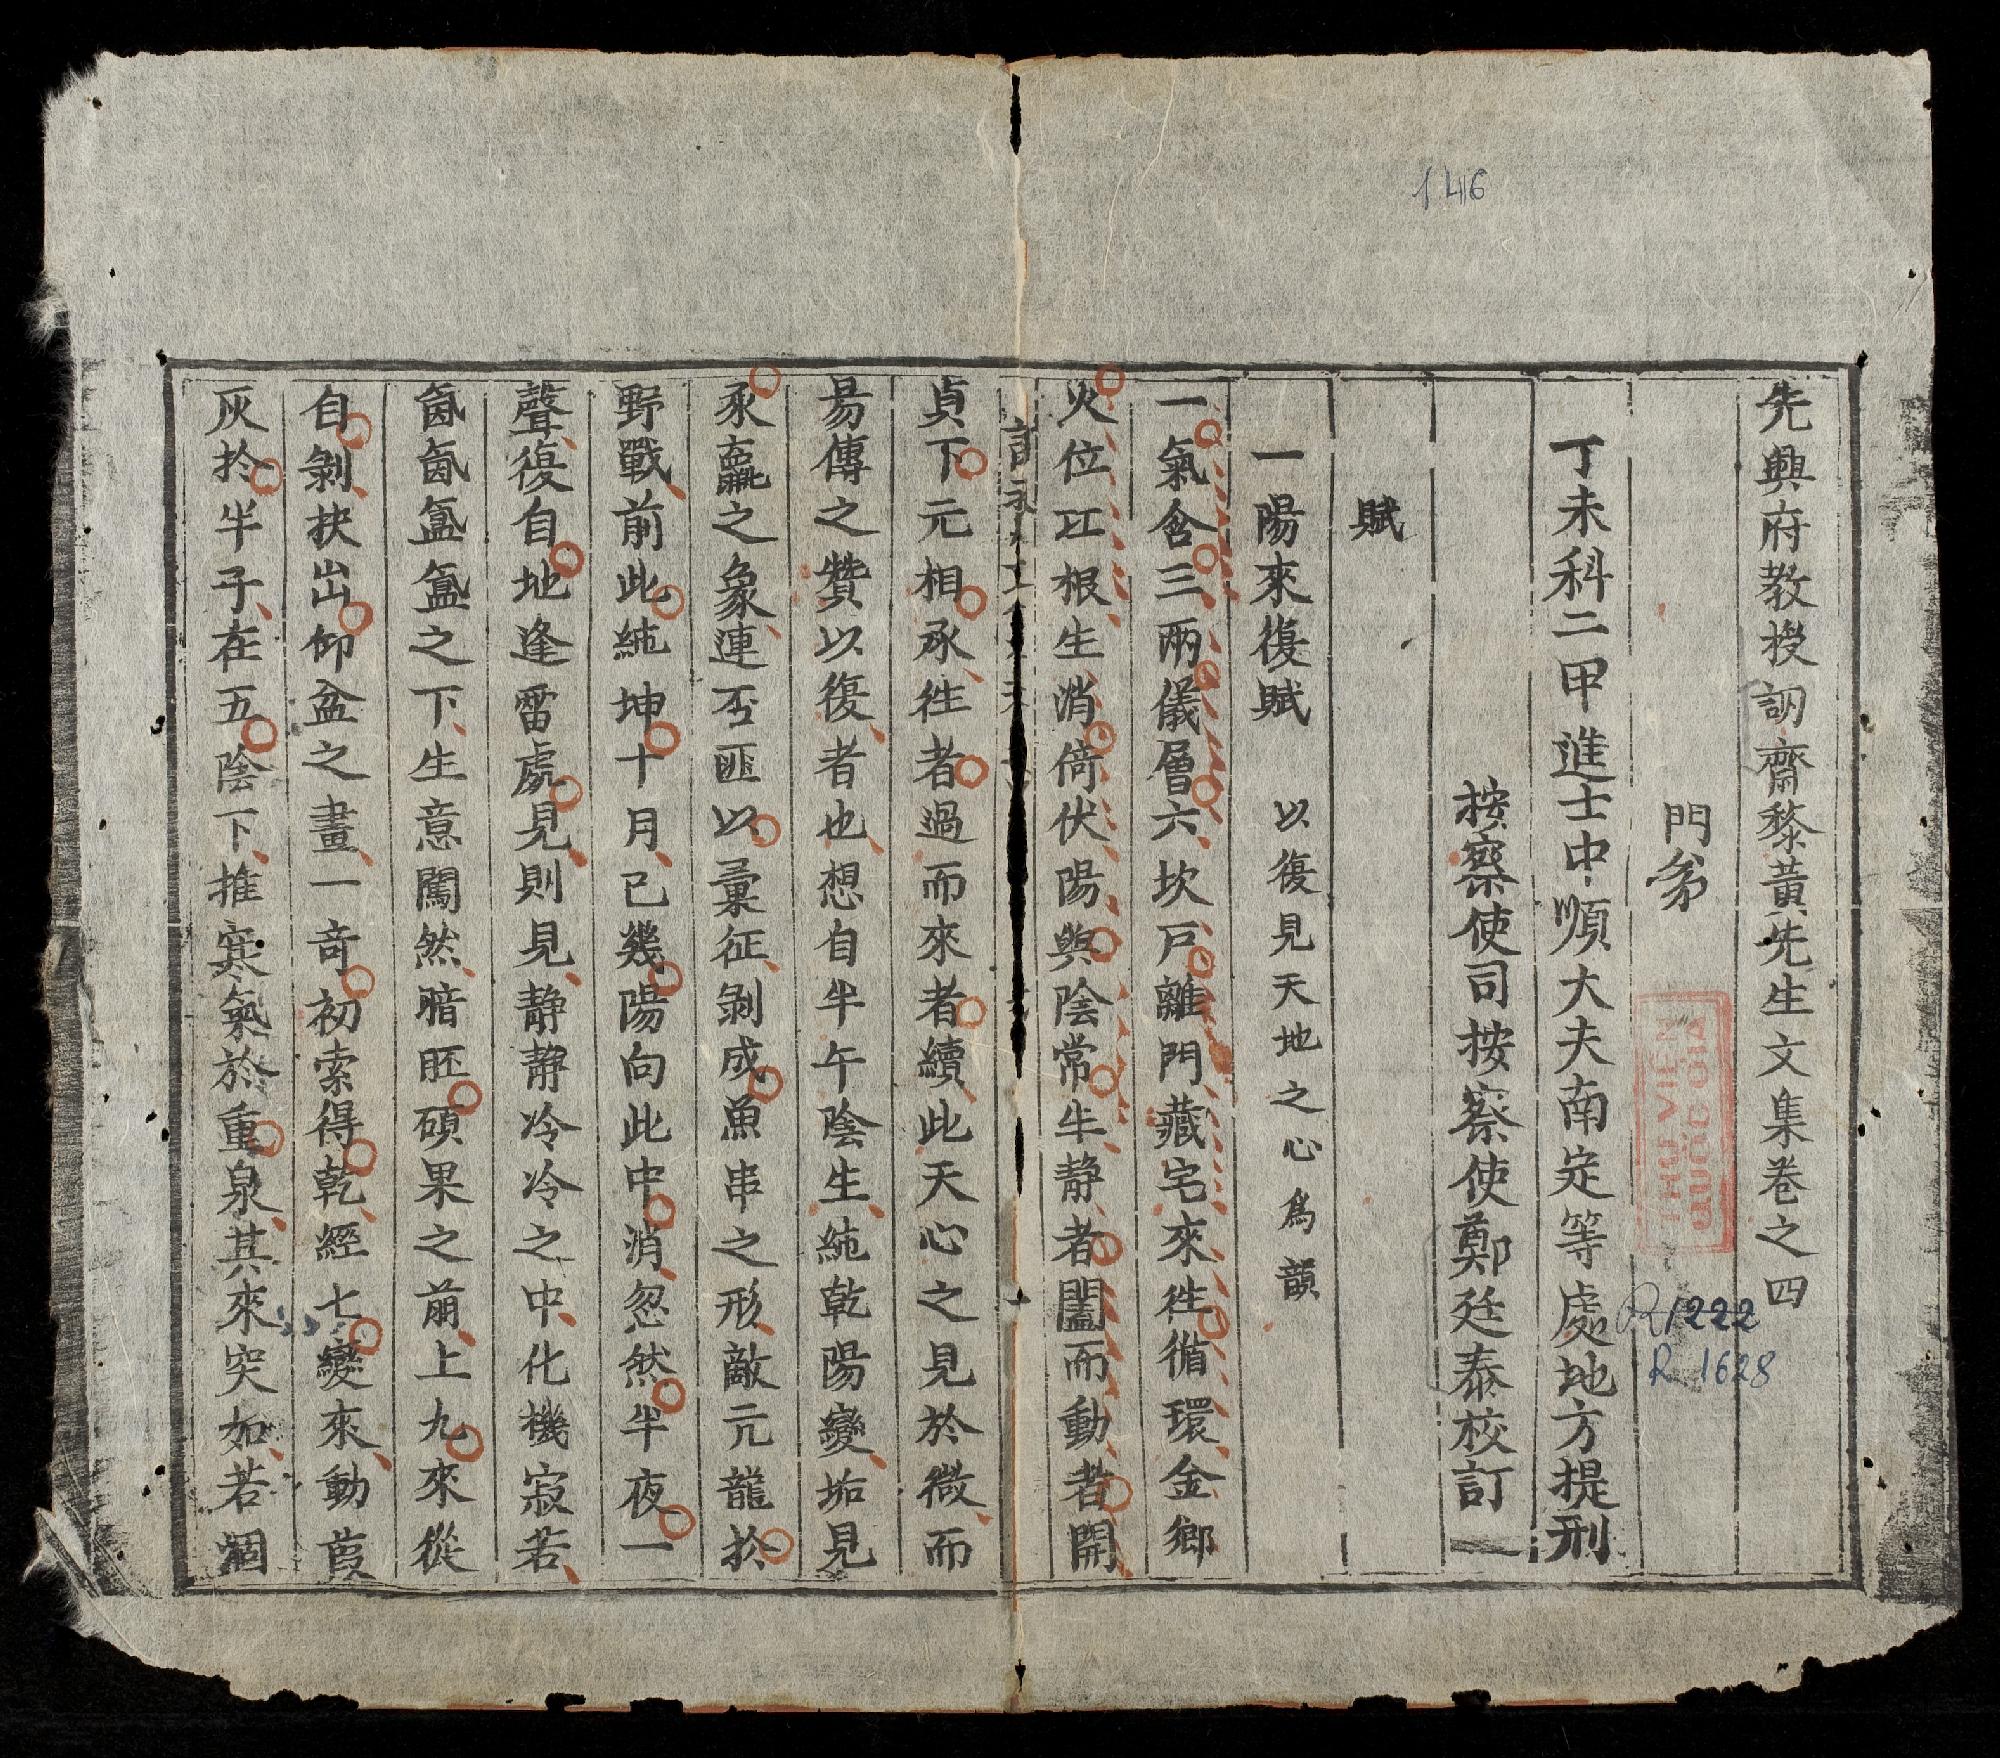 146
先興府教授訥齋黎黃先生文集卷之四
門弟
丁未科二甲進士中順大夫南定等處地方提刑
按察使司按察使鄭廷泰校訂
賦
一陽來復賦 以復見天地之心為韻
一氣含三兩儀層六坎戶離門藏宅來徃循環金鄉
火位互根生消倚伏陽與陰常生静者闔而動者開
貞下元相承徃者過而來者續此天心之見於微而
昜傳之贊以復者也想自半午陰生純乾陽變垢見
豕羸之象連否匪以彙征剥成魚串之形敵元龍於
野戰前此純坤十月已幾陽向此中消忽然半夜一
聲復自地逢雷處見則見静静冷冷之中化機寂若
氤氤氳氳之下生意闖然暗胚碩果之前上九來從
自剝抉出仰盆之畫一竒初索得乾經七變來動葭
灰於半子在五陰下推寒氣於重泉其來突如若涸
THƯ VIỆN
QUỐC GIA
R1222
R 1628